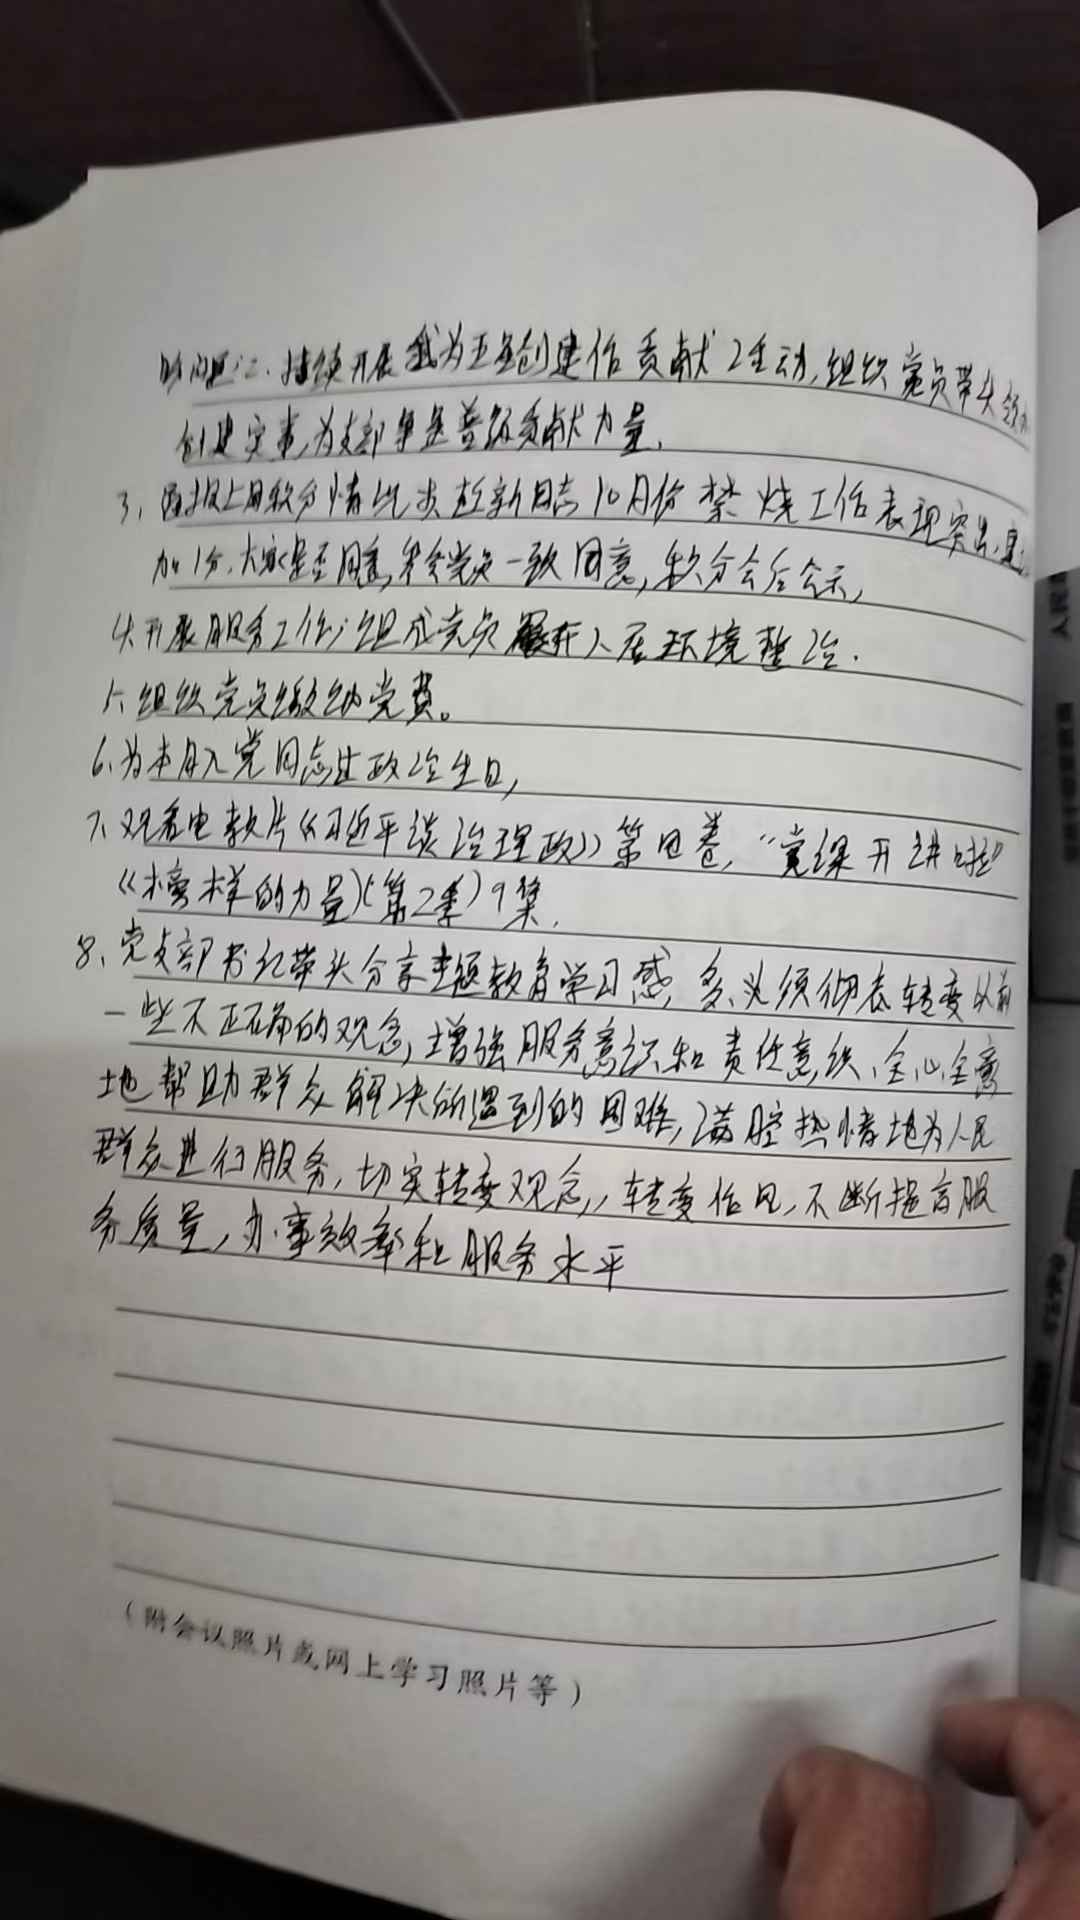 持续开展我为五星创建作贡献活动,组织党员带头领
创建实事,为支部争星晋级贡献力量,
3、通报上月积分情况 新同志10月份禁烧工作表现突出,建
加1分,大家是否同意,参会党员一致同意,积分会后公示,
4.开展服务工作:组成党员 开人居环境整治.
5、组织党员缴纳党费。
6、为本月入党同志过政治生日,
7、观看电教片《习近平谈治理政》第四卷,“党课开讲啦”
《榜样的力量》(第2季)9集.
8、党支部书记带头分享主题教育学习感, 必须彻底转变以前
一些不正确的观念,增强服务意识和责任意织、全心全意
地帮助群众解决所遇到的困难,满腔热情地为人民
群众进行服务,切实转变观念,,转变作风,不断提高服
务质量,办事效率和服务水平
(附会议照片或网上学习照片等)